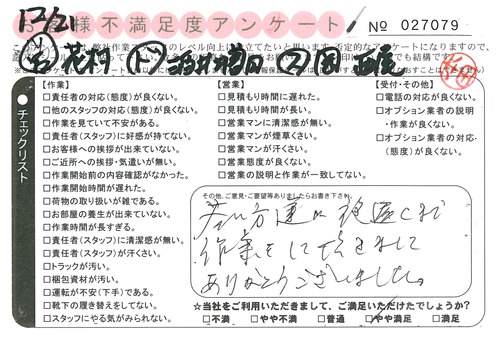 12/21
お客様不満足度アンケート
№ 027079
【作業】
□責任者の対応(態度)が良くない。
□他のスタッフの対応(態度)が良くない。
□作業を見ていて不安がある。
□責任者(スタッフ)に好感が持てない。
□お客様への挨拶が出来ていない。
□ご近所への挨拶・気遣いが無い。
□作業開始前の内容確認がなかった。
□作業開始時間が遅れた。
□荷物の取り扱いが雑である。
□お部屋の養生が出来ていない。
□作業時間が長すぎる。
□責任者(スタッフ)に清潔感が無い。
□責任者(スタッフ)が汗くさい。
□トラックが汚い。
□梱包資材が汚い。
□運転が不安(下手)である。
□靴下の履き替えをしてない。
□スタッフにやる気がみられない。
【営業】
□見積もり時間に遅れた。
□見積もり時間が長い。
□営業マンに清潔感が無い。
□営業マンが煙草くさい。
□営業マンが汗くさい。
□営業態度が良くない。
□営業の説明と作業が一致してない。
【受付・その他】
□電話の対応が良くない。
□オプション業者の説明・作業が良くない。
□オプション業者の対応・(態度)が良くない。
チェックリスト
その他、ご意見・ご要望等ありましたらお書き下さい
若い方達に
作業をして頂きまして
ありがとうございました。
☆当社をご利用いただきまして、ご満足いただけたでしょうか?
□不満 □やや不満 □普通 □やや満足 □満足